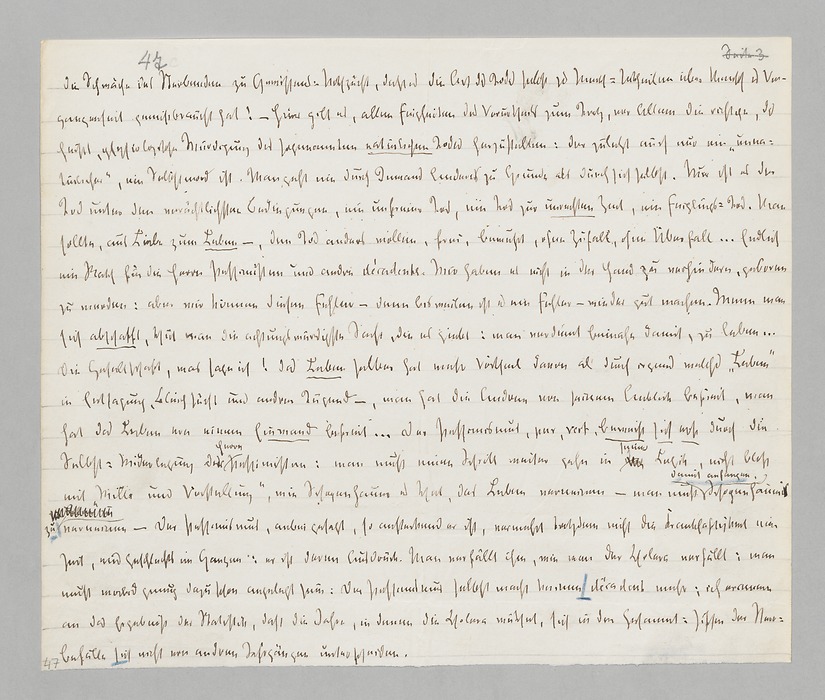 47 Seite 3.
die Schwäche des Sterbenden zu Gewissens-Nothzucht, daß es die Art des Todes selbst zu Werth-Urtheilen über Mensch u Ver-
gangenheit gemißbraucht hat! – Hier gilt es, allen Feigheiten des Vorurtheils zum Trotz, vor Allem die richtige, das
heißt physiologische Würdigung des sogenannten natürlichen Todes herzustellen: der zuletzt auch nur ein „unna-
türlicher“, ein Selbstmord ist. Man geht nie durch Jemand Anderes zu Grunde als durch sich selbst. Nur ist es der
Tod unter den verächtlichsten Bedingungen, ein unfreier Tod, ein Tod zur unrechten Zeit, ein Feiglings-Tod. Man
sollte, aus Liebe zum Leben –, den Tod anders wollen, frei, bewußt, ohne Zufall, ohne Überfall ... Endlich
ein Rath für die Herrn Pessimisten und andre décadents. Wir haben es nicht in der Hand zu verhindern, geboren
zu werden: aber wir können diesen Fehler – denn bisweilen ist es ein Fehler – wieder gut machen. Wenn man
sich abschafft, thut man die achtungswürdigste Sache, die es giebt: man verdient beinahe damit, zu leben ...
Die Gesellschaft, was sage ich! das Leben selber hat mehr Vortheil davon als durch irgend welches „Leben“
in Entsagung, Bleichsucht und andrer Tugend –, man hat die Andern von seinem Anblick befreit, man
hat das Leben von einem Einwand befreit ... Der Pessimismus, pur, vert, beweist sich erst durch die
Selbst-Widerlegung der Herrn Pessimisten: man muß einen Schritt weiter gehn in seiner Logik, nicht bloß
mit „Wille und Vorstellung“, wie Schopenhauer es that, das Leben verneinen – man muß Schopenhauern damit anfangen.
zu verneinen – Der Pessimismus, anbei gesagt, so ansteckend er ist, vermehrt trotzdem nicht die Krankhaftigkeit einer
Zeit, eines Geschlechts im Ganzen: er ist deren Ausdruck. Man verfällt ihm, wie man der Cholera verfällt: man
muß morbid genug dazu schon angelegt sein: Der Pessimismus selbst macht keinen décadent mehr; ich erinnere
an das Ergebniß der Statistik, daß die Jahre, in denen die Cholera wüthet, sich in der Gesammt-Ziffer der Ster-
befälle nicht von andern Jahrgängen unterscheiden.
47